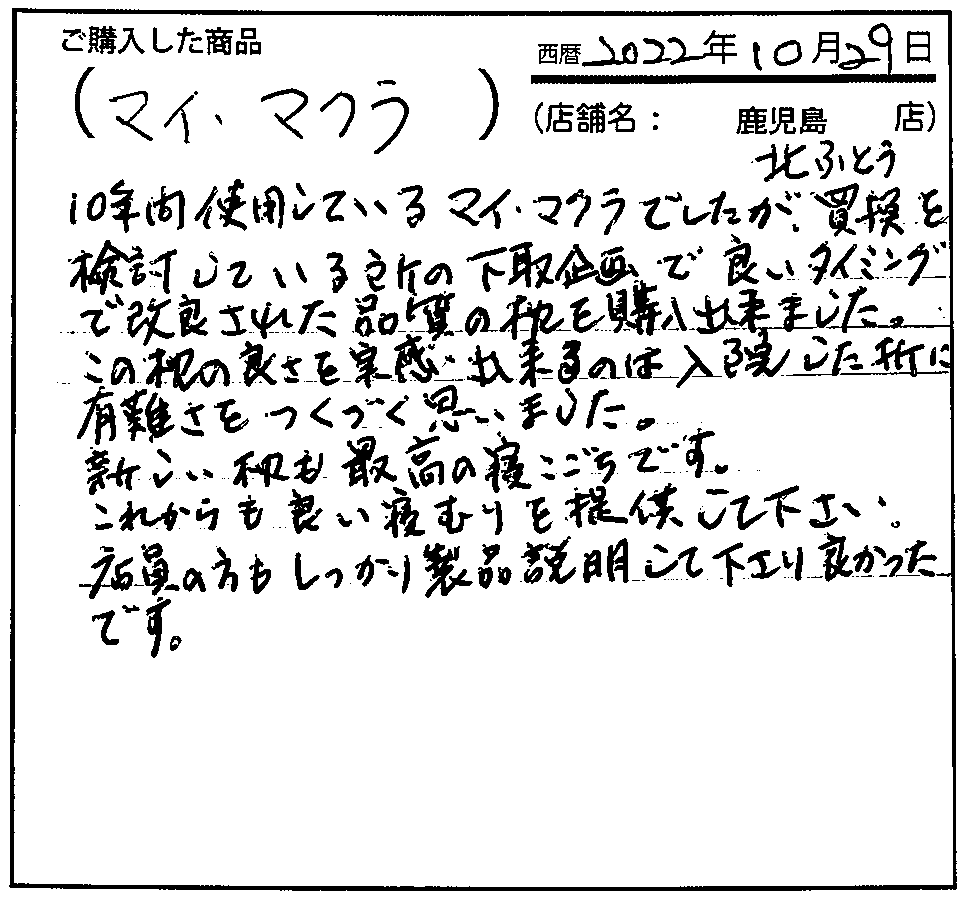 ご購入した商品
(マイ・マクラ)
西暦 2022年10月29日
(店舗名: 鹿児島 店)
北ふとう
10年間使用しているマイ・マクラでしたが、買換を
検討している所の下取企画で良いタイミング
で改良された品質の枕を購入出来ました。
この枕の良さを実感出来るのは入院した所に
有難さをつくづく思いました。
新しい枕も最高の寝ごこちです。
これからも良い寝むりを提供して下さい。
店員の方もしっかり製品説明して下さり良かった
です。